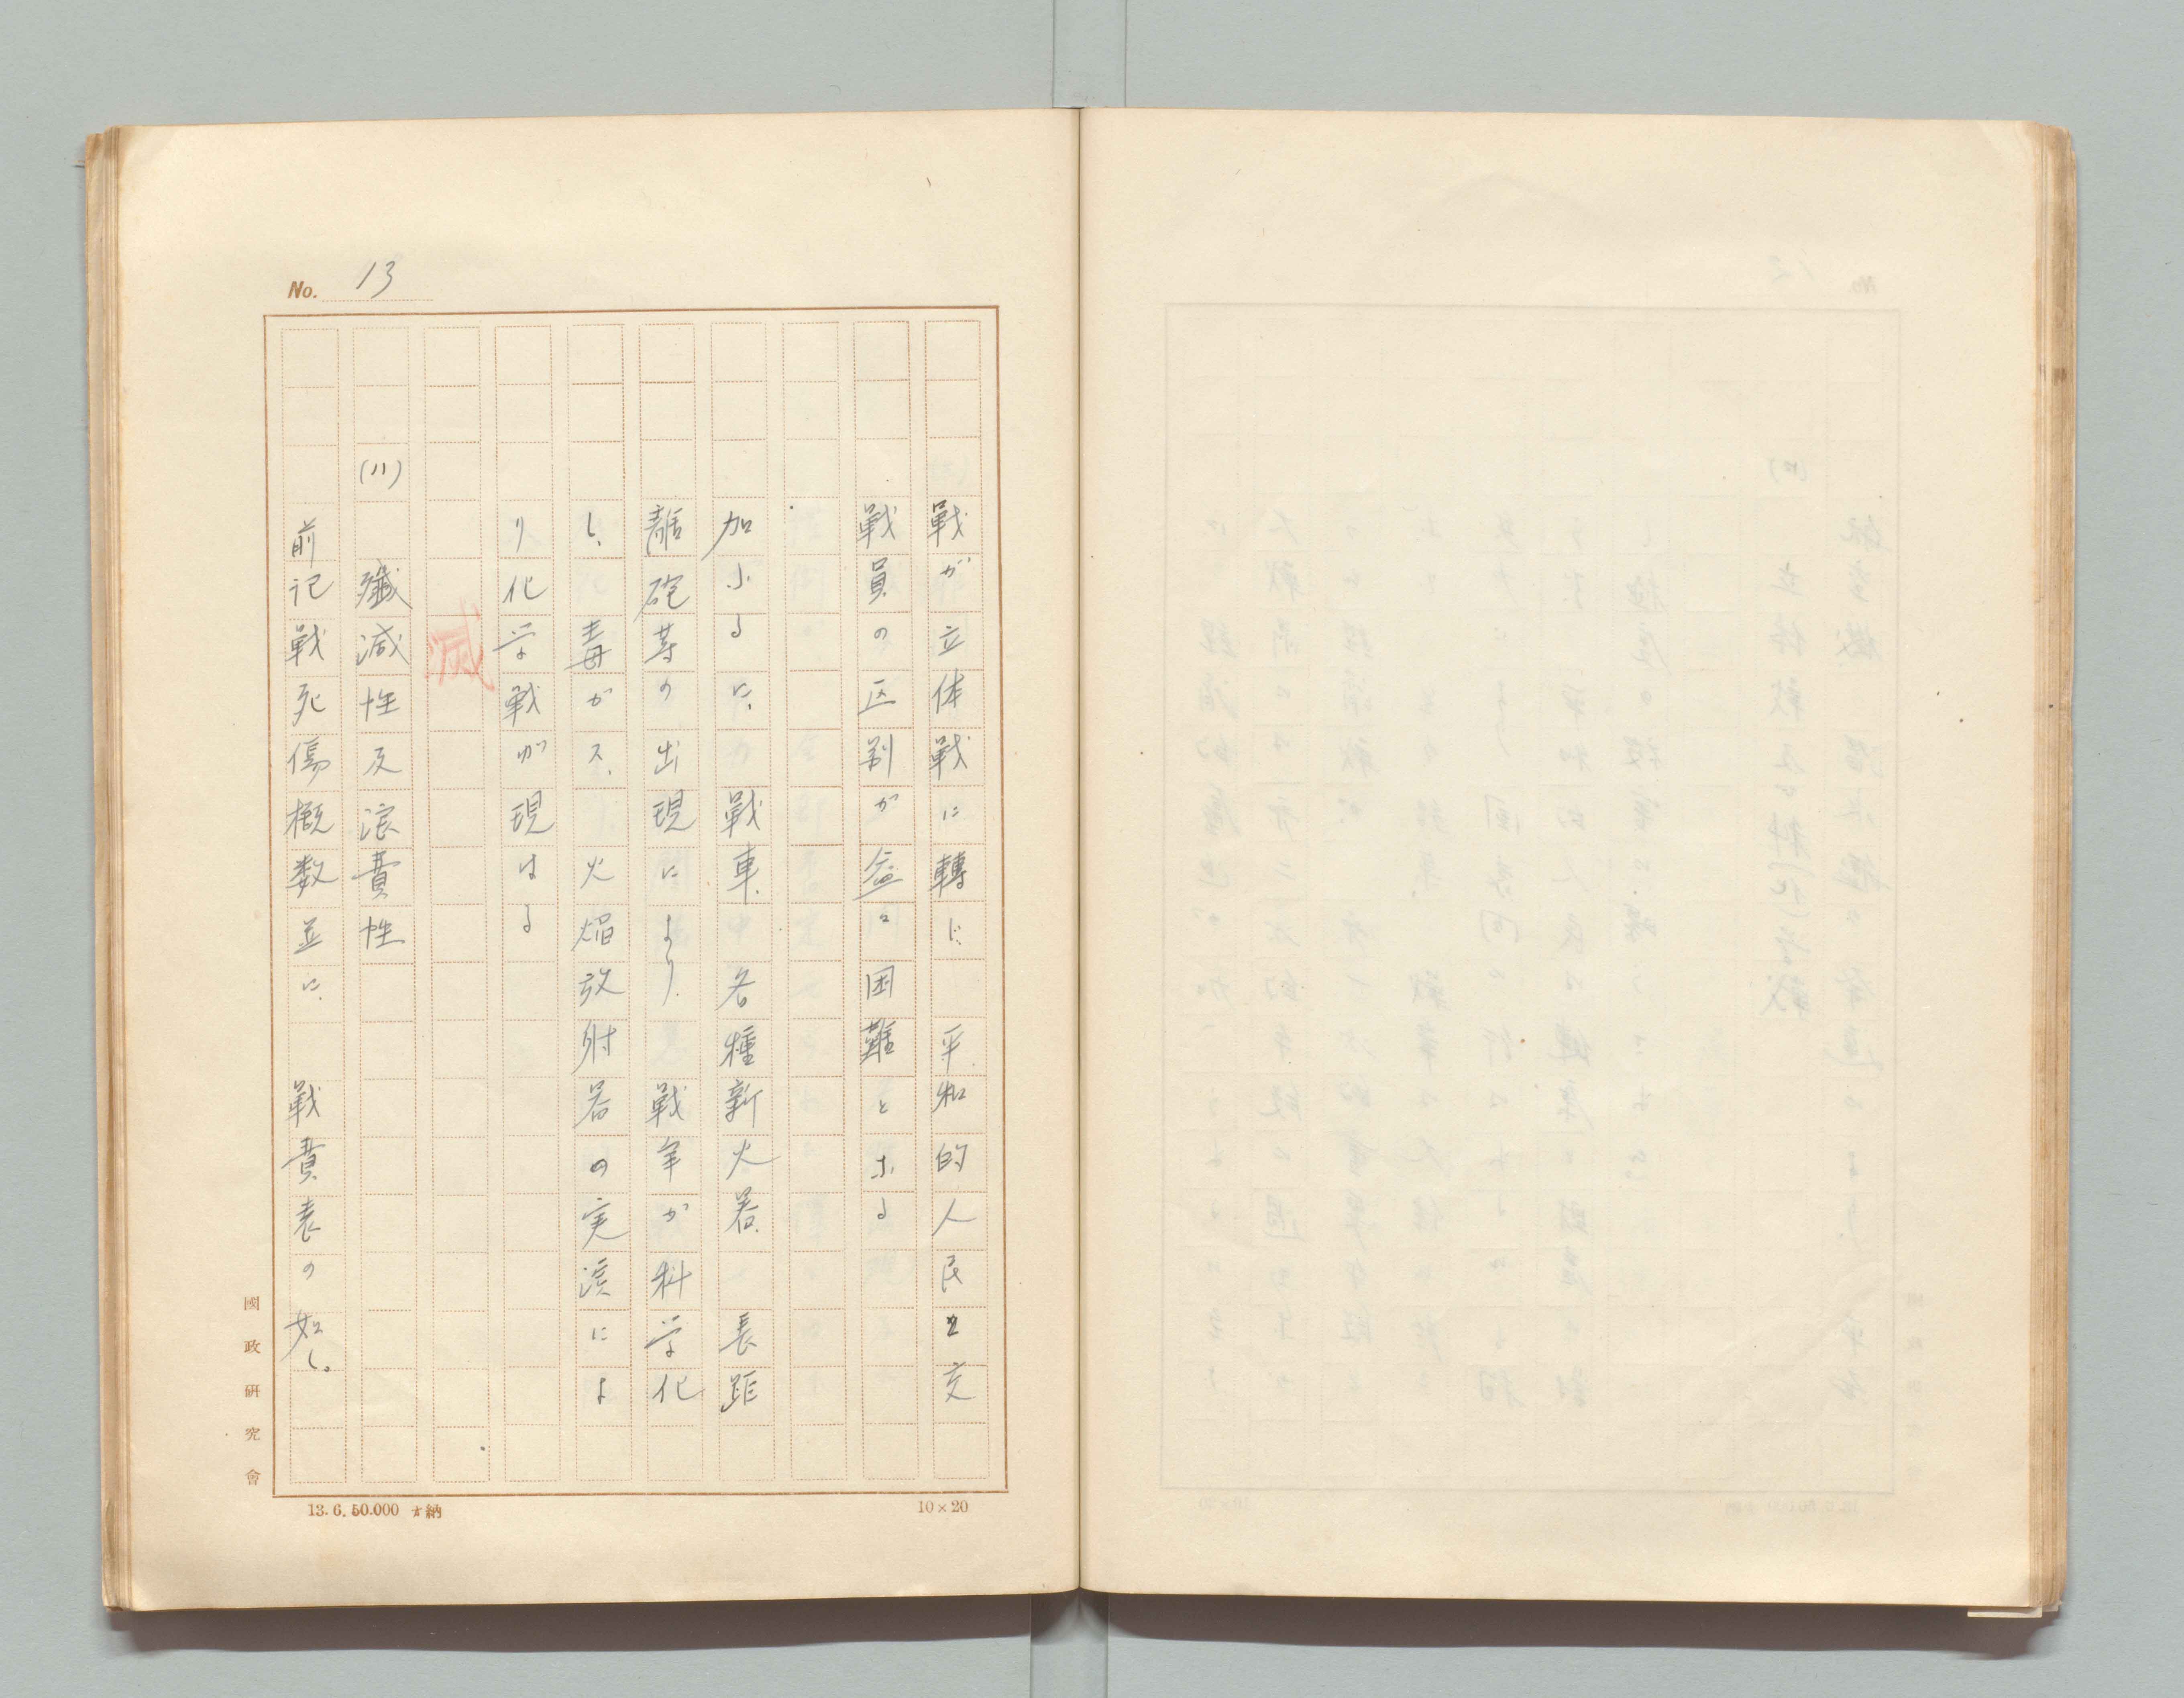 No. 13
戦が立体戦に轉じ 平和的人民と交
戦員の区別が益々困難となる
加ふるに、戦車、各種新火器 長距
離砲等の出現により 戦争が科学化
し、毒ガス、火焔放射器の実演によ
り化学戦が現はる
滅
(ハ)
殲滅性及浪費性
前記戦死傷概数並に 戦費表の如し。
國政研究會
13.6.50.000 納
10×20